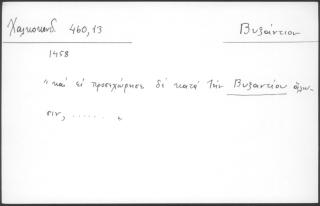 Χαλκοκονδ. 460,13 Βυζάντιον
1458
"καὶ εἰ προσεχώρησε δὲ κατὰ τὴν Βυζαντίου ἅλω-
σιν, ...... "